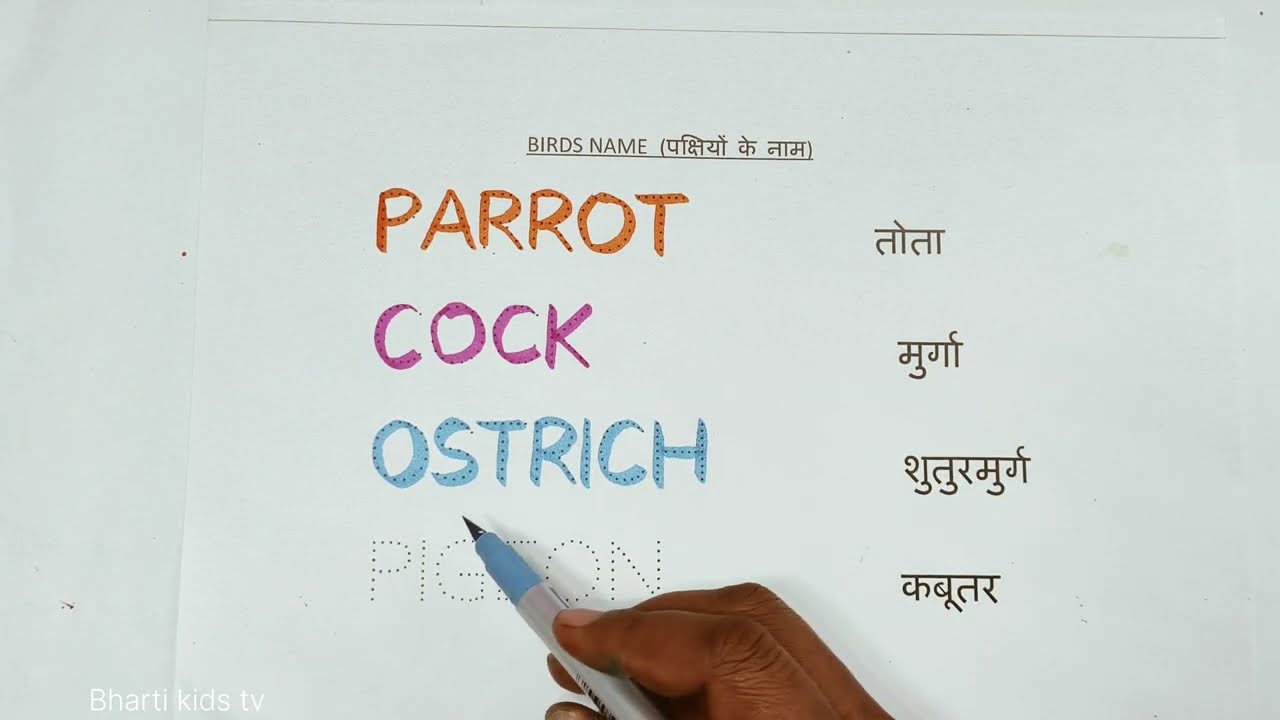 BIRDS NAME (पक्षियों के नाम)
PARROT तोता
COCK मुर्गा
OSTRICH शुतुरमुर्ग
PIGEON कबूतर
Bharti kids tv